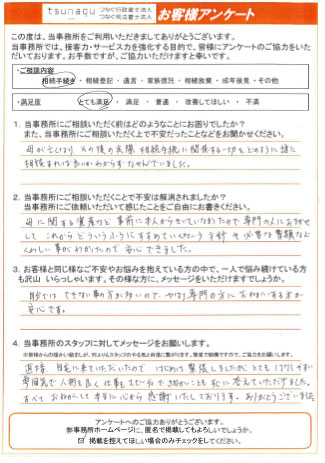 tsunagu つなぐ行政書士法人
つなぐ司法書士法人
お客様アンケート
この度は、当事務所をご利用いただきましてありがとうございます。
当事務所では、接客力・サービス力を強化する目的で、皆様にアンケートのご協力をいた
だいております。お手数ですが、ご協力いただけますと幸いです。
・ご相談内容
相続手続き ・ 相続登記 ・ 遺言 ・ 家族信託 ・ 相続放棄 ・ 成年後見 ・ その他
・満足度 とても満足 ・ 満足 ・ 普通 ・ 改善してほしい ・ 不満
1. 当事務所にご相談いただく前はどのようなことにお困りでしたか?
また、当事務所にご相談いただく上で不安だったことなどをお聞かせください。
母が亡くなり その後の実際 相続手続に関係する一切を どのように誰に
相談すれば良いかわからず なやんでいました。
2. 当事務所にご相談いただくことで不安は解消されましたか?
当事務所にご依頼いただいて感じたことをご自由にお書きください。
母に関する資産など 事前に本人からきいていなかたので 専門の人にお話を
して これからどういうふうにすすめていくなという 方針や必要な書類など
くわしい事がわかったので 安心できました。
3. お客様と同じ様なご不安やお悩みを抱えている方の中で、一人で悩み続けている方
も沢山 いらっしゃいます。その様な方に、メッセージをいただけますでしょうか。
自分では できない事の方が多いので やはり専門の方に おねがいする方が
安心です。
4. 当事務所のスタッフに対してメッセージをお願いします。
※皆様からの暖かい励ましが、何よりもスタッフのやる気と自信に繋がります。簡単で結構ですので、ご協力をお願いします。
直接 自宅に来ていただいたので はじめは 緊張しましたが とても 話しやすい
雰囲気で 人柄も良く 仕事も スピーディで 細かいことも 気に 答えていただけました。
すべて おねがいして 本当に 心から 感謝いたしております。 ありがとうございました
アンケートへのご協力ありがとうございます。
弊事務所ホームページに、匿名で掲載してもよろしいでしょうか。
掲載を控えてほしい場合のみチェックをしてください。